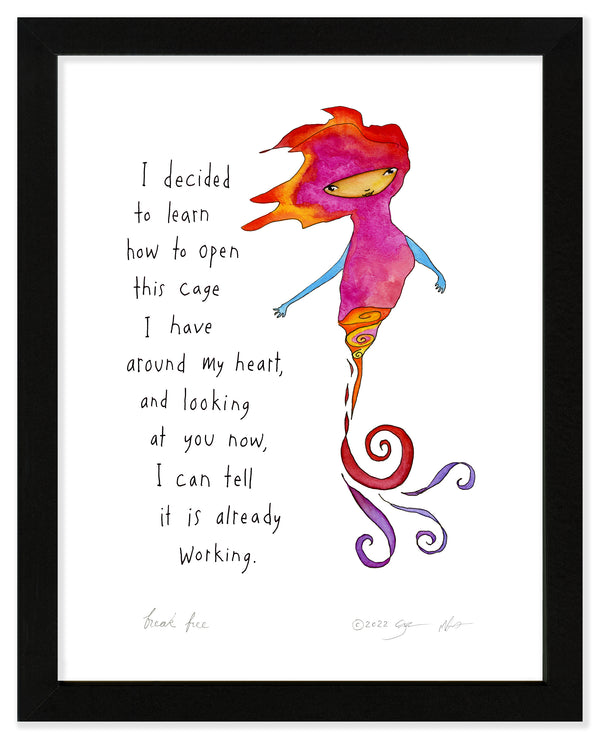 I decided
to learn
how to open
this cage
I have
around my heart,
and looking
at you now,
I can tell
it is already
working.
break free
©2022